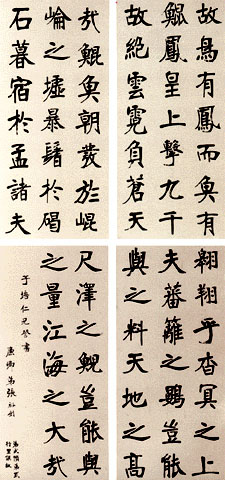 故鳥有鳳而魚有
鯤鳳皇上擊九千
故絕雲霓負蒼天
翱翔乎杳冥之上
夫蕃籬之鷃豈能
與之料天地之高
哉鯤魚朝發於崐
崘之墟暴鬐於碣
石暮宿於孟諸夫
尺澤之鯢豈能與
之量江海之大哉
仁兄 書
廉卿弟張裕釗